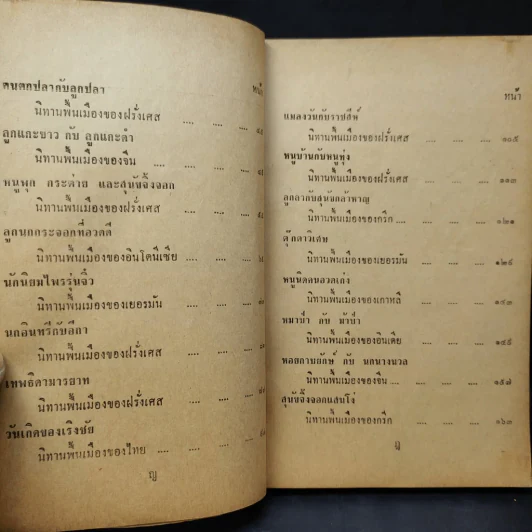 หน้า
คนตกปลากับลูกปลา
นิทานพื้นเมืองของฝรั่งเศส .... ....
ลูกแกะขาว กับ ลูกแกะดำ
นิทานพื้นเมืองของจีน .... ....
หนูพุก กระต่าย และสุนัขจิ้งจอก
นิทานพื้นเมืองของฝรั่งเศส .... ....
ลูกนกกระจอกที่อวดดี
นิทานพื้นเมืองของอินโดนีเซีย .... ....
นักนิยมไพรรุ่นจิ๋ว
นิทานพื้นเมืองของเยอรมัน .... ....
นกอินทรีกับอีกา
นิทานพื้นเมืองของฝรั่งเศส .... ....
เทพธิดามารยาท
นิทานพื้นเมืองของฝรั่งเศส .... ....
วันเกิดของเริงชัย
นิทานพื้นเมืองของไทย .... ....
ญ
หน้า
แมลงวันกับราชสีห์
นิทานพื้นเมืองของฝรั่งเศส .... .... ๑๐๕
หนูบ้านกับหนูทุ่ง
นิทานพื้นเมืองของฝรั่งเศส .... .... ๑๑๓
ลูกลากับสุนัขกล้าหาญ
นิทานพื้นเมืองของกรีก .... .... .... ๑๒๑
ตุ๊กตาวิเศษ
นิทานพื้นเมืองของเยอรมัน .... .... ๑๒๙
หนูนิดคนอวดเก่ง
นิทานพื้นเมืองของเกาหลี .... .... ๑๔๓
หมาป่า กับ ม้าป่า
นิทานพื้นเมืองของอินเดีย .... .... ๑๔๕
หอยกาบยักษ์ กับ นกนางนวล
นิทานพื้นเมืองของจีน .... .... .... ๑๕๗
สุนัขจิ้งจอกแสนโง่
นิทานพื้นเมืองของกรีก .... .... ๑๖๓